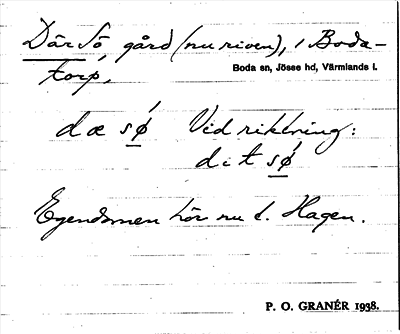 Där Sö, gård (nu riven), i Boda-
torp,
Boda sn, Jösse hd, Värmlands l.
dæ sǿ Vid riktning:
dit sǿ
Egendomen hör nu t. Hagen.
P. O. GRANÉR 1938.